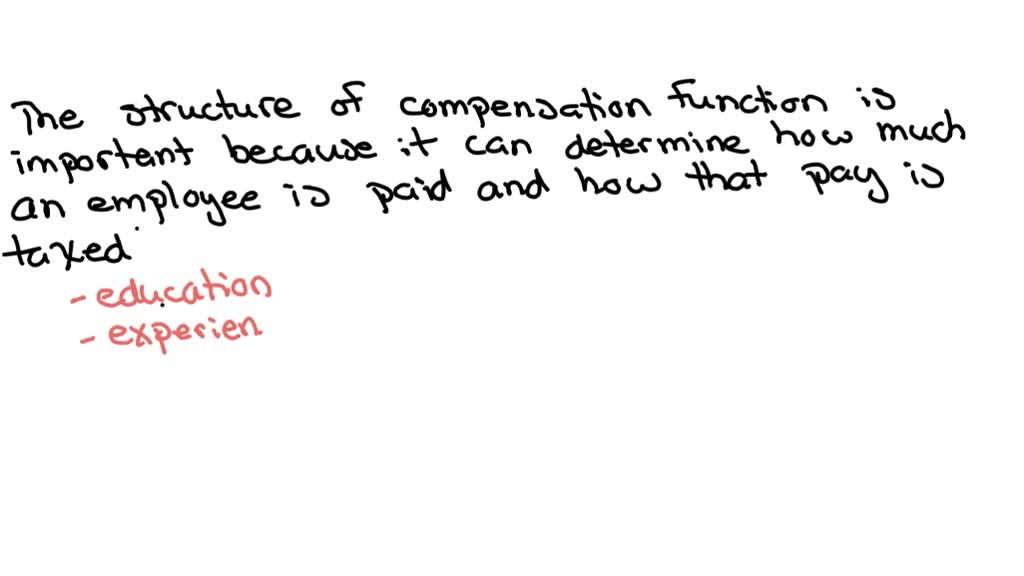 The structure of compensation function is
important because it can determine how much
an employee is paid and how that pay is
taxed
- education
- experien